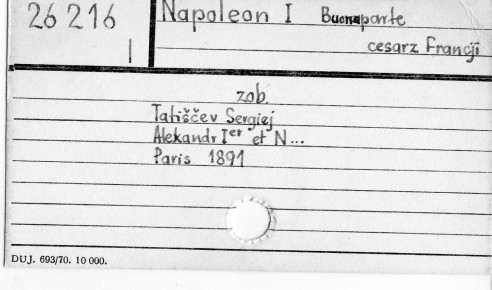 26 216
I
Napoleon I Buonaparte
cesarz Francji
zob.
Tatiščev Sergiej
Alexandr Ier et N...
Paris 1891
DUJ. 693/70. 10 000.